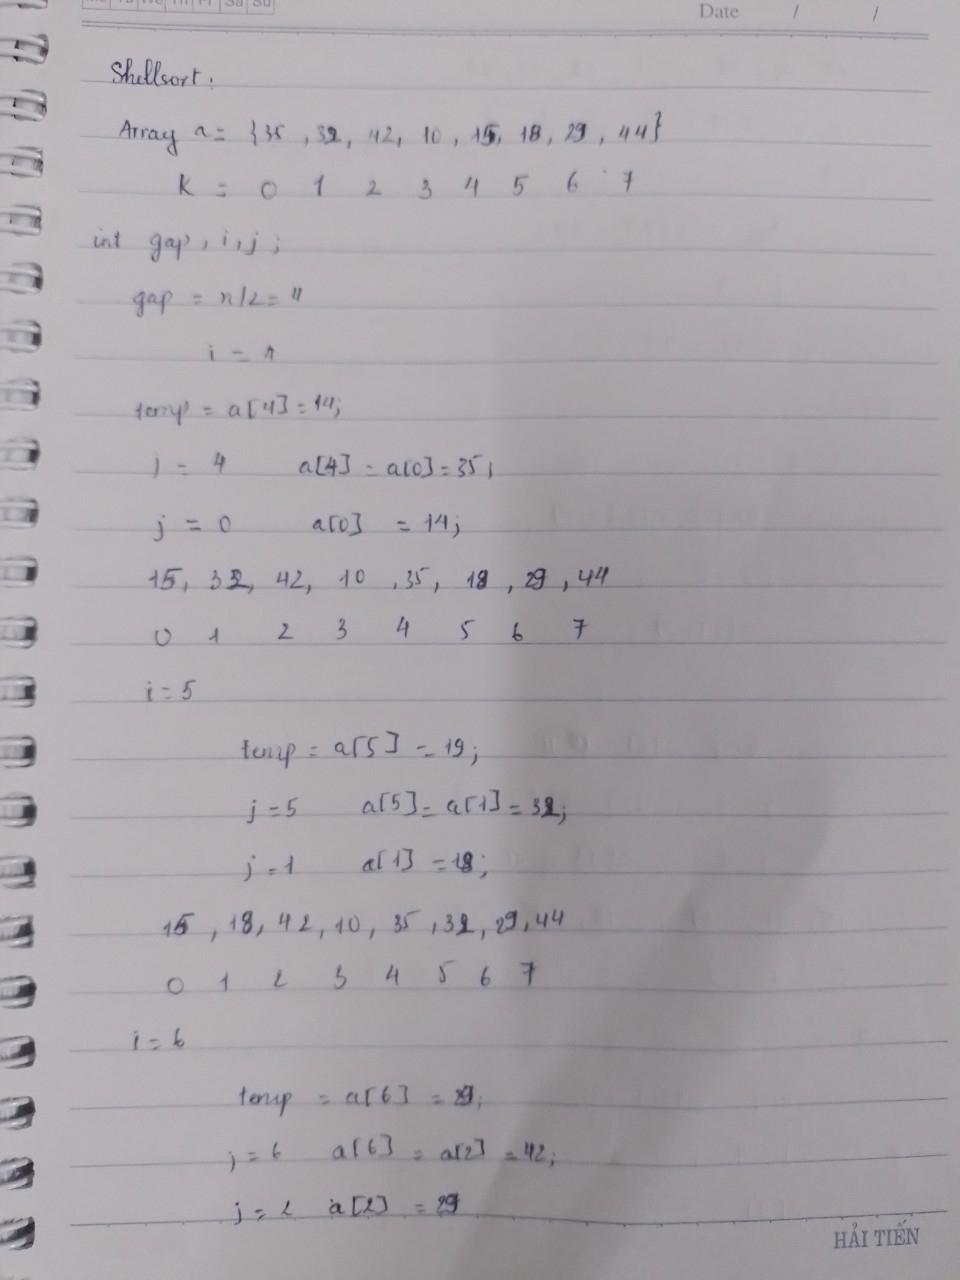 Sa Su
Date / /
Shellsort:
Array a = {35, 32, 42, 10, 15, 18, 29, 44}
K = 0 1 2 3 4 5 6 7
int gap, i, j;
gap = n/2 = 4
i = 4
temp = a[4] = 14;
j = 4 a[4] = a[0] = 35;
j = 0 a[0] = 14;
15, 32, 42, 10, 35, 18, 29, 44
0 1 2 3 4 5 6 7
i = 5
temp = a[5] = 19;
j = 5 a[5] = a[1] = 32;
j = 1 a[1] = 18;
15, 18, 42, 10, 35, 32, 29, 44
0 1 2 3 4 5 6 7
i = 6
temp = a[6] = 29;
j = 6 a[6] = a[2] = 42;
j = 2 a[2] = 29
HẢI TIẾN